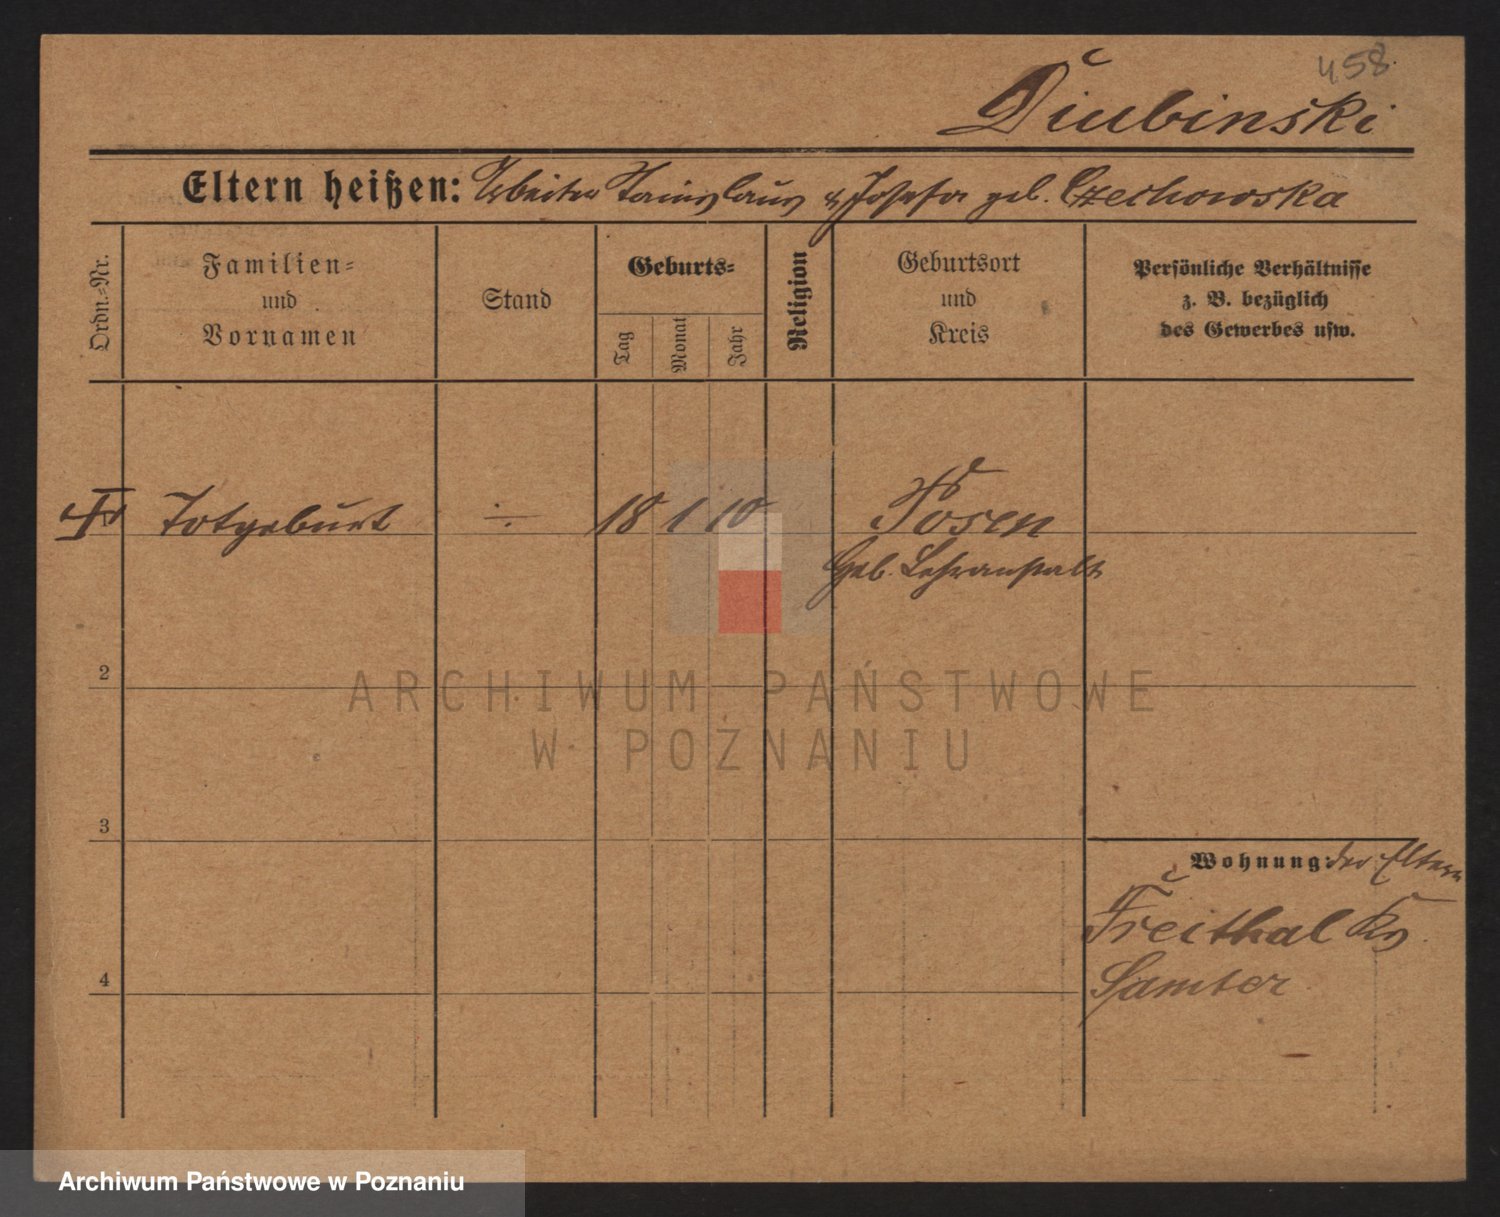 458.
Diubinski
Eltern heißen: Arbeiter Stanislaus & Josefa geb. Czechowska
Ordn.-Nr.
Familien-
und
Vornamen
Stand
Geburts-
Tag
Monat
Jahr
Religion
Geburtsort
und
Kreis
Persönliche Verhältnisse
z. B. bezüglich
des Gewerbes usw.
Totgeburt ÷ 18 1 10 Posen
Geb. Lehranstalt
2
ARCHIWUM PAŃSTWOWE
W POZNANIU
3
Wohnung: der Eltern
Freithal Kr
4
Samter
Archiwum Państwowe w Poznaniu